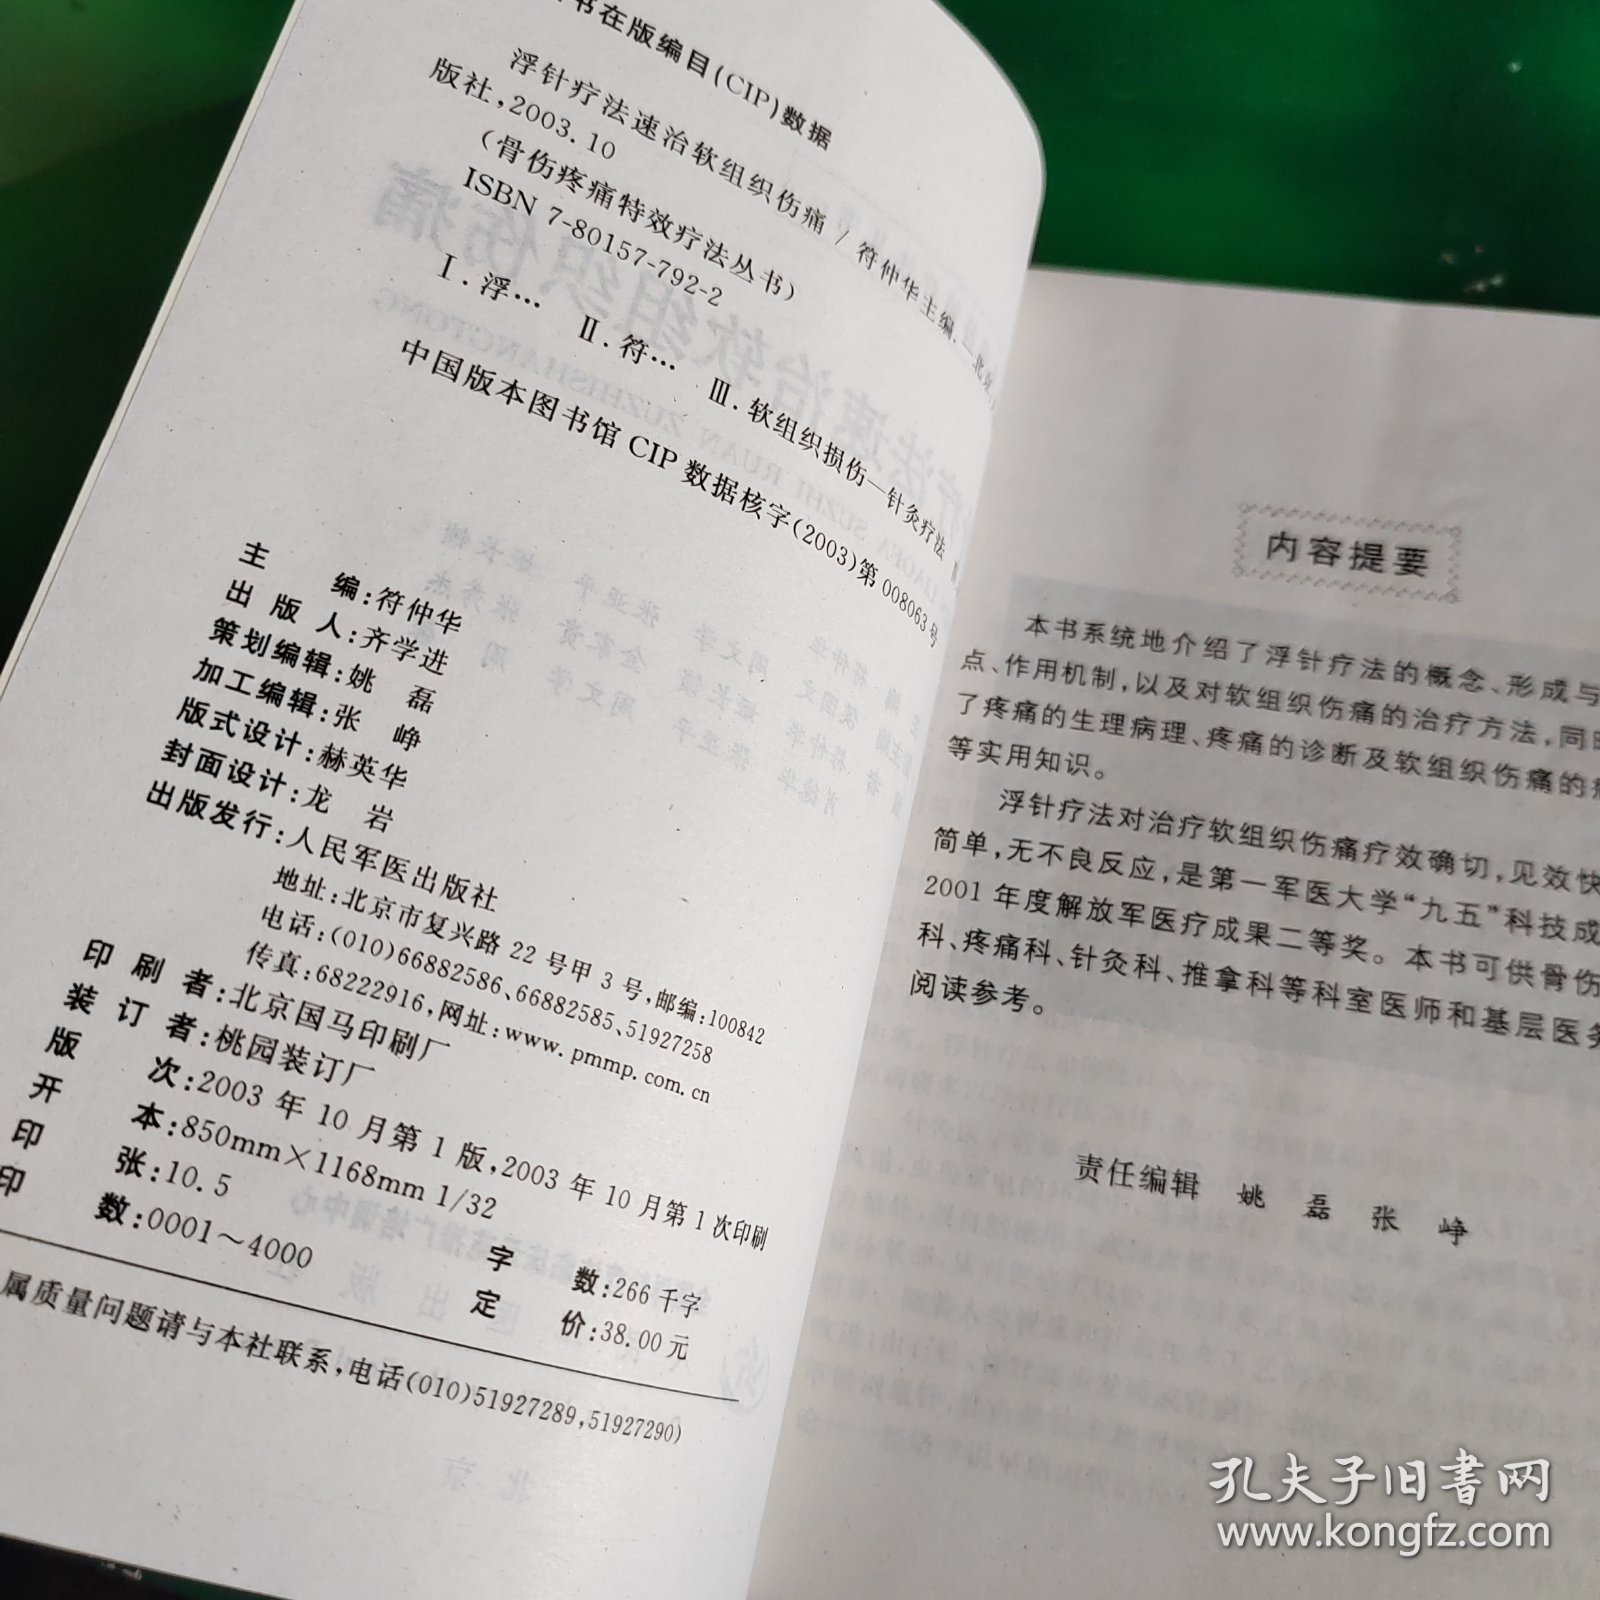 书在版编目(CIP)数据
浮针疗法速治软组织伤痛/符仲华主编.—北京
版社,2003.10
(骨伤疼痛特效疗法丛书)
ISBN 7-80157-792-2
Ⅰ.浮… Ⅱ.符… Ⅲ.软组织损伤—针灸疗法
中国版本图书馆 CIP 数据核字(2003)第 008063 号
主 编:符仲华
出 版 人:齐学进
策划编辑:姚 磊
加工编辑:张 峥
版式设计:赫英华
封面设计:龙 岩
出版发行:人民军医出版社
地址:北京市复兴路 22 号甲 3 号,邮编:100842
电话:(010)66882586、66882585、51927258
传真:68222916,网址:www.pmmp.com.cn
印 刷 者:北京国马印刷厂
装 订 者:桃园装订厂
版 次:2003 年 10 月第 1 版,2003 年 10 月第 1 次印刷
开 本:850mm×1168mm 1/32
印 张:10.5
印 数:0001～4000
字 数:266 千字
定 价:38.00 元
属质量问题请与本社联系,电话(010)51927289,51927290)
内容提要
本书系统地介绍了浮针疗法的概念、形成与
点、作用机制,以及对软组织伤痛的治疗方法,同时
了疼痛的生理病理、疼痛的诊断及软组织伤痛的
等实用知识。
浮针疗法对治疗软组织伤痛疗效确切,见效快
简单,无不良反应,是第一军医大学“九五”科技成
2001 年度解放军医疗成果二等奖。本书可供骨伤
科、疼痛科、针灸科、推拿科等科室医师和基层医务
阅读参考。
责任编辑 姚 磊 张 峥
孔夫子旧书网
www.kongfz.com